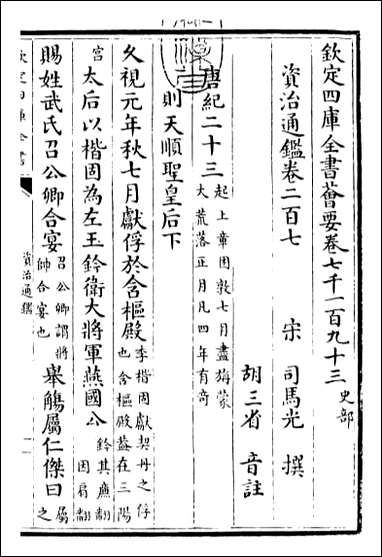 欽定四庫全書薈要卷七千一百九十三 史部
資治通鑑卷二百七
宋 司馬光 撰
胡三省 音註
唐紀二十三 起上章困敦七月盡旃蒙大荒落正月凡四年有奇
則天順聖皇后下
久視元年秋七月獻俘於含樞殿 李楷固獻契丹之俘也含樞殿蓋在三陽宮
太后以楷固為左玉鈐衛大將軍燕國公 鈐其廉翻 燕因肩翻
賜姓武氏召公卿合宴 召公卿謂將帥合宴也 舉觴屬仁傑曰 屬之
欽定四庫全書
資治通鑑